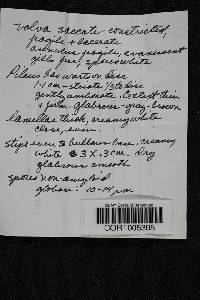 volva saccate-constricted,
fragile + lacerate
annulus fragile, evanescent
gills free, spores white
Pileus has warts on disc
1.1 cm-striate 1/3 to disc
gently umbonate. Context thin
+ firm. glabrous-gray-brown
lamellae thick, creamy white
close, even.
stipe even to bulbous base. creamy
white 8 x .3 cm. dry
glabrous smooth
spores non-amyloid
globose 10-14 µm
SUNY Cortland Herbarium
CORT005305